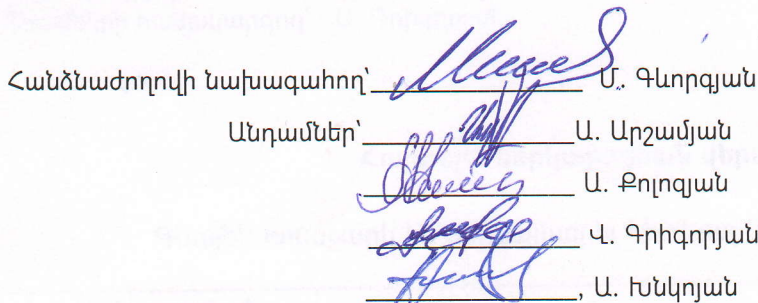 Հանձնաժողովի նախագահող՝ Մ. Գևորգյան
Անդամներ՝ Ա. Արշամյան
Ա. Քոլոզյան
Վ. Գրիգորյան
, Ա. Խնկոյան